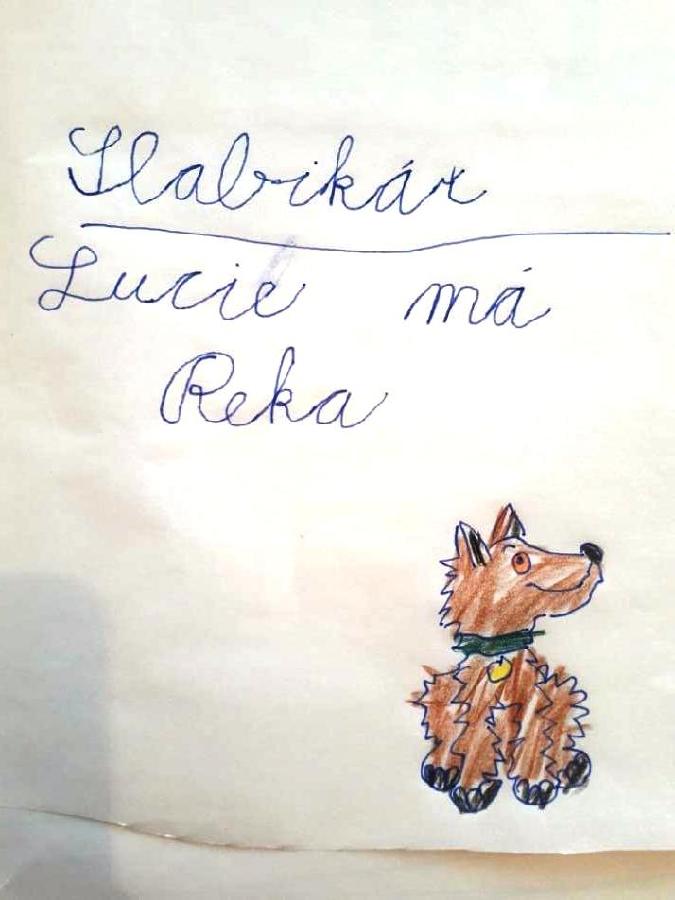 Slabikár
Lucie má
Reka